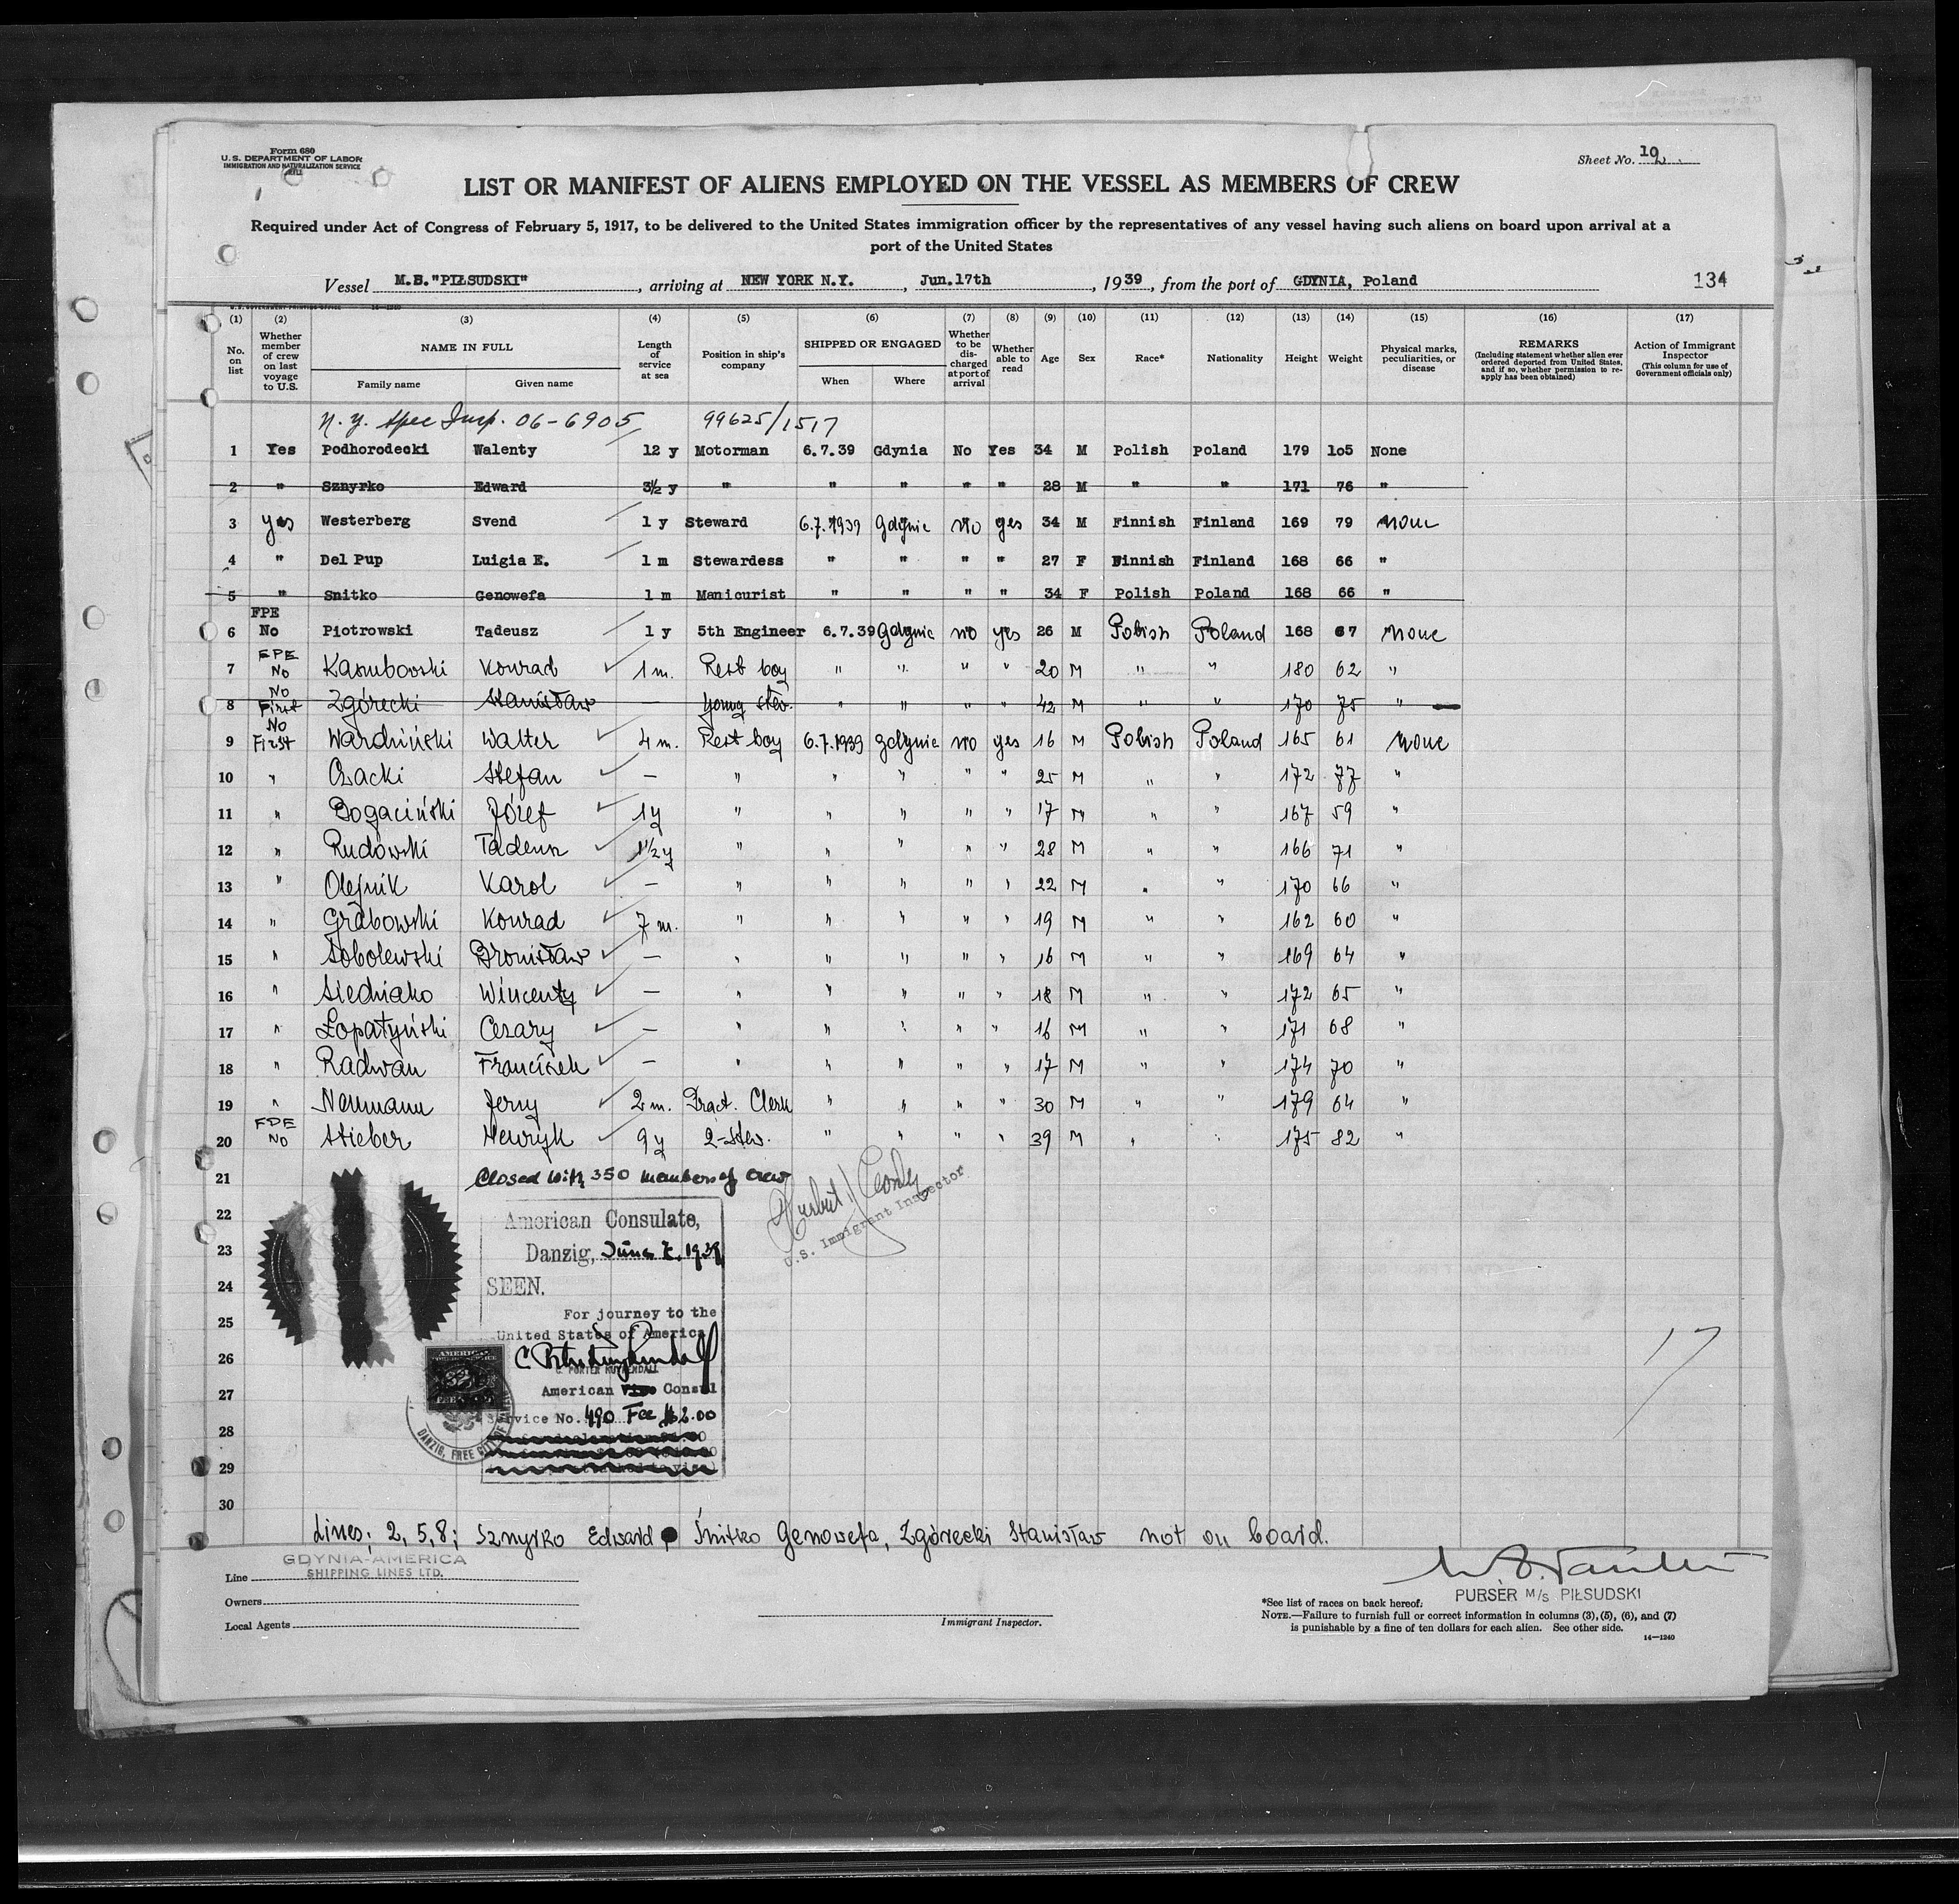 Form 680
U.S. DEPARTMENT OF LABOR
IMMIGRATION AND NATURALIZATION SERVICE
Sheet No. 10
LIST OR MANIFEST OF ALIENS EMPLOYED ON THE VESSEL AS MEMBERS OF CREW
Required under Act of Congress of February 5, 1917, to be delivered to the United States immigration officer by the representatives of any vessel having such aliens on board upon arrival at a
port of the United States
Vessel M.S."PIŁSUDSKI", arriving at NEW YORK N.Y., Jun.17th, 1939, from the port of GDYNIA, Poland 134
(1) (2) (3) (4) (5) (6) (7) (8) (9) (10) (11) (12) (13) (14) (15) (16) (17)
No. on list Whether member of crew on last voyage to U.S. NAME IN FULL Family name Given name Length of service at sea Position in ship's company SHIPPED OR ENGAGED When Where Whether to be discharged at port of arrival Whether able to read Age Sex Race* Nationality Height Weight Physical marks, peculiarities, or disease REMARKS (Including statement whether alien ever ordered deported from United States, and if so, whether permission to reapply has been obtained) Action of Immigrant Inspector (This column for use of Government officials only)
N.Y. Spec Insp. 06-6905 99625/1517
1 Yes Podhorodecki Walenty 12 y Motorman 6.7.39 Gdynia No Yes 34 M Polish Poland 179 105 None
2 " Sznyrko Edward 3½ y " " " " " 28 M " " 171 76 "
3 yes Westerberg Svend 1 y Steward 6.7.1939 Gdynia no yes 34 M Finnish Finland 169 79 none
4 " Del Pup Luigia E. 1 m Stewardess " " " " 27 F Finnish Finland 168 66 "
5 " Snitko Genowefa 1 m Manicurist " " " " 34 F Polish Poland 168 66 "
6 FPE No Piotrowski Tadeusz 1 y 5th Engineer 6.7.39 Gdynia no yes 26 M Polish Poland 168 67 none
7 FPE No Konrad 1 m. Rest boy " " " " 20 M " " 180 62 "
8 No First Zgórecki Stanisław — young stew. " " " " 42 M " " 170 75 "
9 No First Wardziński Walter 4 m. Rest boy 6.7.1939 Gdynia no yes 16 M Polish Poland 165 61 none
10 " Czacki Stefan — " " " " " 25 M " " 172 77 "
11 " Bogaciński Józef 1y " " " " " 17 M " " 167 59 "
12 " Rudowski Tadeusz 1½ y " " " " " 28 M " " 166 71 "
13 " Olejnik Karol — " " " " " 22 M " " 170 66 "
14 " Grabowski Konrad 7 m. " " " " " 19 M " " 162 60 "
15 " Sobolewski Bronisław — " " " " " 16 M " " 169 64 "
16 " Wincenty — " " " " " 18 M " " 172 65 "
17 " Łopatyński Cezary — " " " " " 16 M " " 171 68 "
18 " Radwan Franciszek — " " " " " 17 M " " 174 70 "
19 " Neumann Jerzy 2 m. Pract. Clerk " " " " 30 M " " 179 64 "
20 FPE No Stieber Henryk 9 y 2-Stew. " " " " 39 M " " 175 82 "
21 Closed with 350 members of crew
22 American Consulate,
U.S. Immigrant Inspector
23 Danzig, June 7. 1939
24 SEEN.
25 For journey to the
United States of America
26 C. PORTER KUYKENDALL
AMERICAN
27 American Vice Consul
Service No. 490 Fee $2.00
28
DANZIG, FREE CITY
29
30
17
Lines; 2, 5, 8; Sznyrko Edward, Śnitko Genowefa, Zgórecki Stanisław not on board.
Line GDYNIA-AMERICA
SHIPPING LINES LTD.
Owners
Local Agents
Immigrant Inspector.
PURSER M/S PIŁSUDSKI
*See list of races on back hereof.
NOTE.—Failure to furnish full or correct information in columns (3), (5), (6), and (7)
is punishable by a fine of ten dollars for each alien. See other side.
14—1240